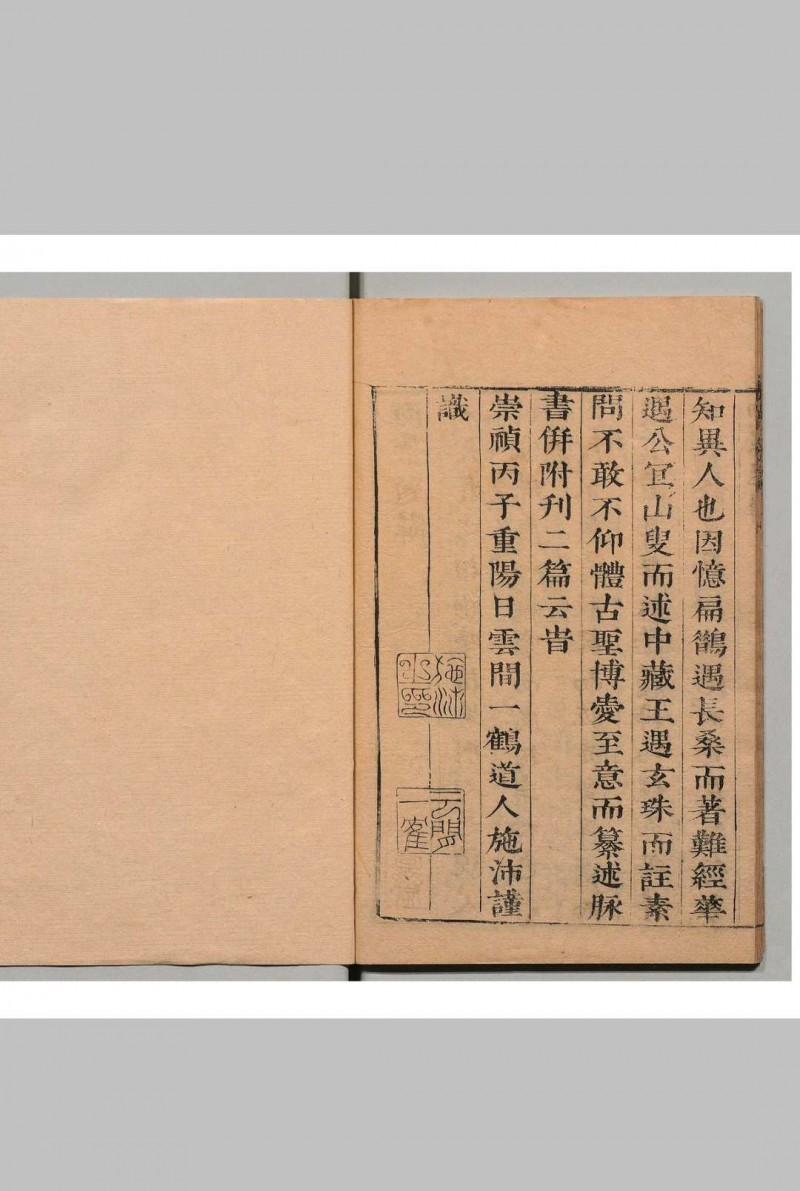 知異人也因憶扁鵲遇長桑而著難經華
遇公宜山叟而述中藏王遇玄珠而註素
問不敢不仰體古聖博愛至意而纂述脉
書倂附刊二篇云旹
崇禎丙子重陽日雲間一鶴道人施沛謹
識
施沛
之印
云間
一隺